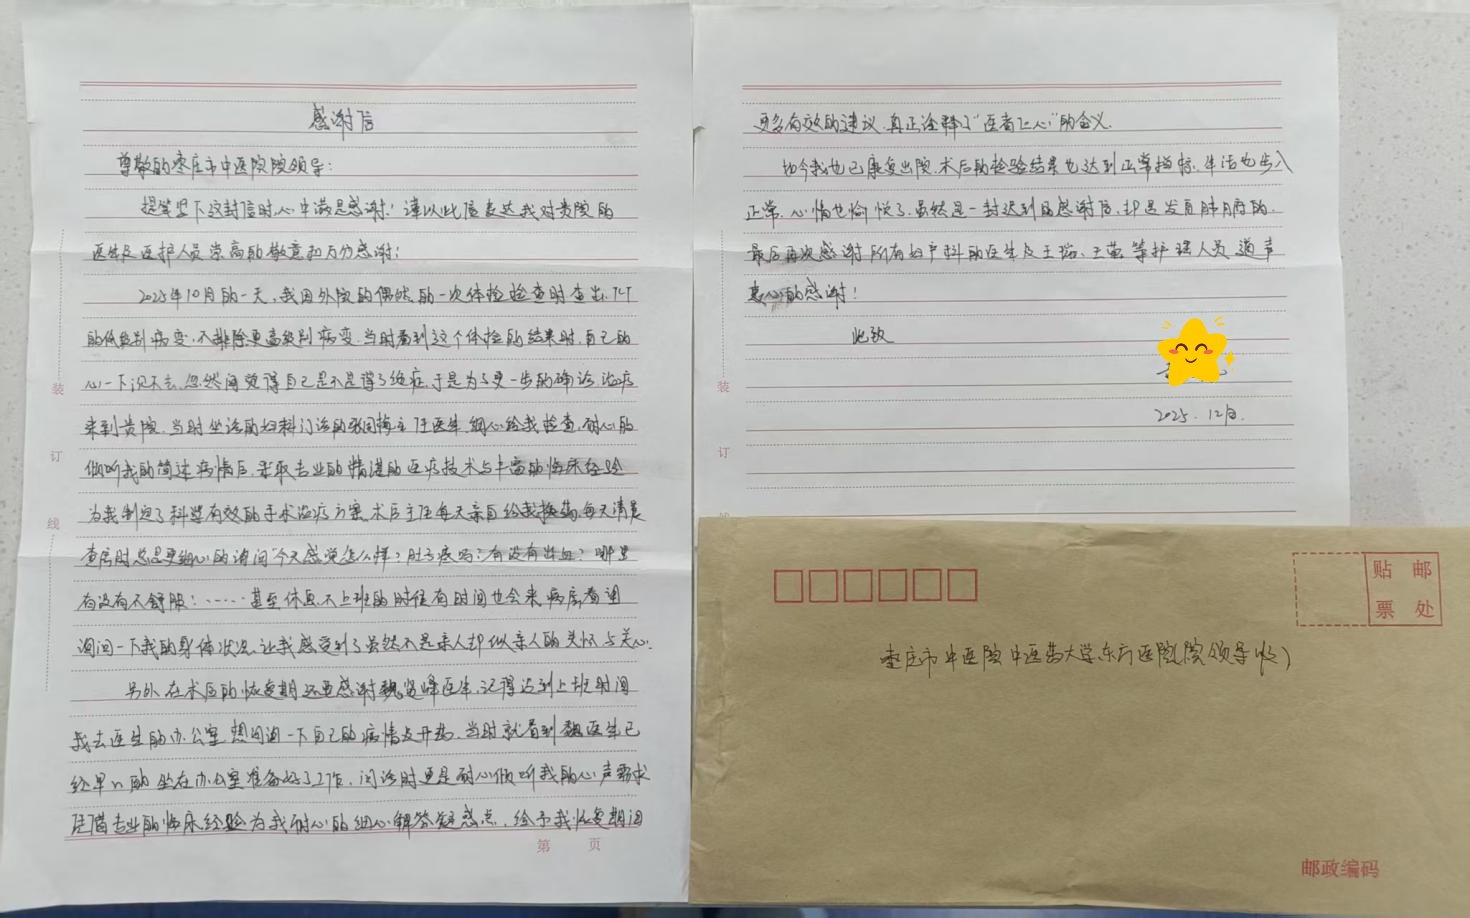 感谢信
尊敬的枣庄市中医院院领导：
提笔写下这封信时，心中满是感谢！谨以此信表达我对贵院的
医生及医护人员崇高的敬意和万分感谢！
2025年10月的一天，我因外院的偶然的一次体检检查时查出，TCT
的低级别病变，不排除更高级别病变，当时看到这个体检的结果时，自己的
心一下沉不去，忽然间觉得自己是不是得了绝症，于是为了更一步的确诊、治疗
来到贵院，当时坐诊的妇科门诊的张同梅主任医生，细心给我检查，耐心的
倾听我的简述病情后，采取专业的精湛的医疗技术与丰富的临床经验
为我制定了科学有效的手术治疗方案，术后主任每天亲自给我换药，每天清晨
查房时总是更细心的询问“今天感觉怎么样？肚子疼吗？有没有出血？哪里
有没有不舒服！……甚至休息，不上班的时候有时间也会来病房看望
询问一下我的身体状况，让我感受到了虽然不是亲人却似亲人的关怀与关心。
另外，在术后的恢复期还要感谢魏贤峰医生，记得达到上班时间
我去医生的办公室想问询一下自己的病情及开药，当时就看到魏医生已
经早早的坐在办公室准备好了工作，问诊时更是耐心倾听我的心声需求
凭借专业的临床经验为我耐心的细心解答疑惑点，给予我恢复期间
第 页
更多有效的建议，真正诠释了“医者仁心”的含义。
如今我也已康复出院，术后的检验结果也达到正常指标，生活也步入
正常，心情也愉快了，虽然是一封迟到的感谢信，却是发自肺腑的，
最后再次感谢所有妇产科的医生及王瑞、王蕾等护理人员，道声
衷心的感谢！
此致
2025.12月.
装
订
线
装
订
贴 邮
票 处
枣庄市中医院 中医药大学东方医院院领导(收)
邮政编码